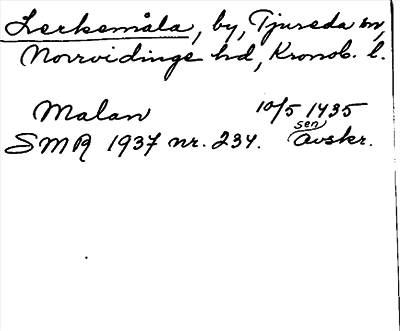 Lerkemåla, by, Tjureda sn,
Norrvidinge hd, Kronob. l.
Malan 10/5 1435
SMR 1937 nr. 234. sen Avskr.